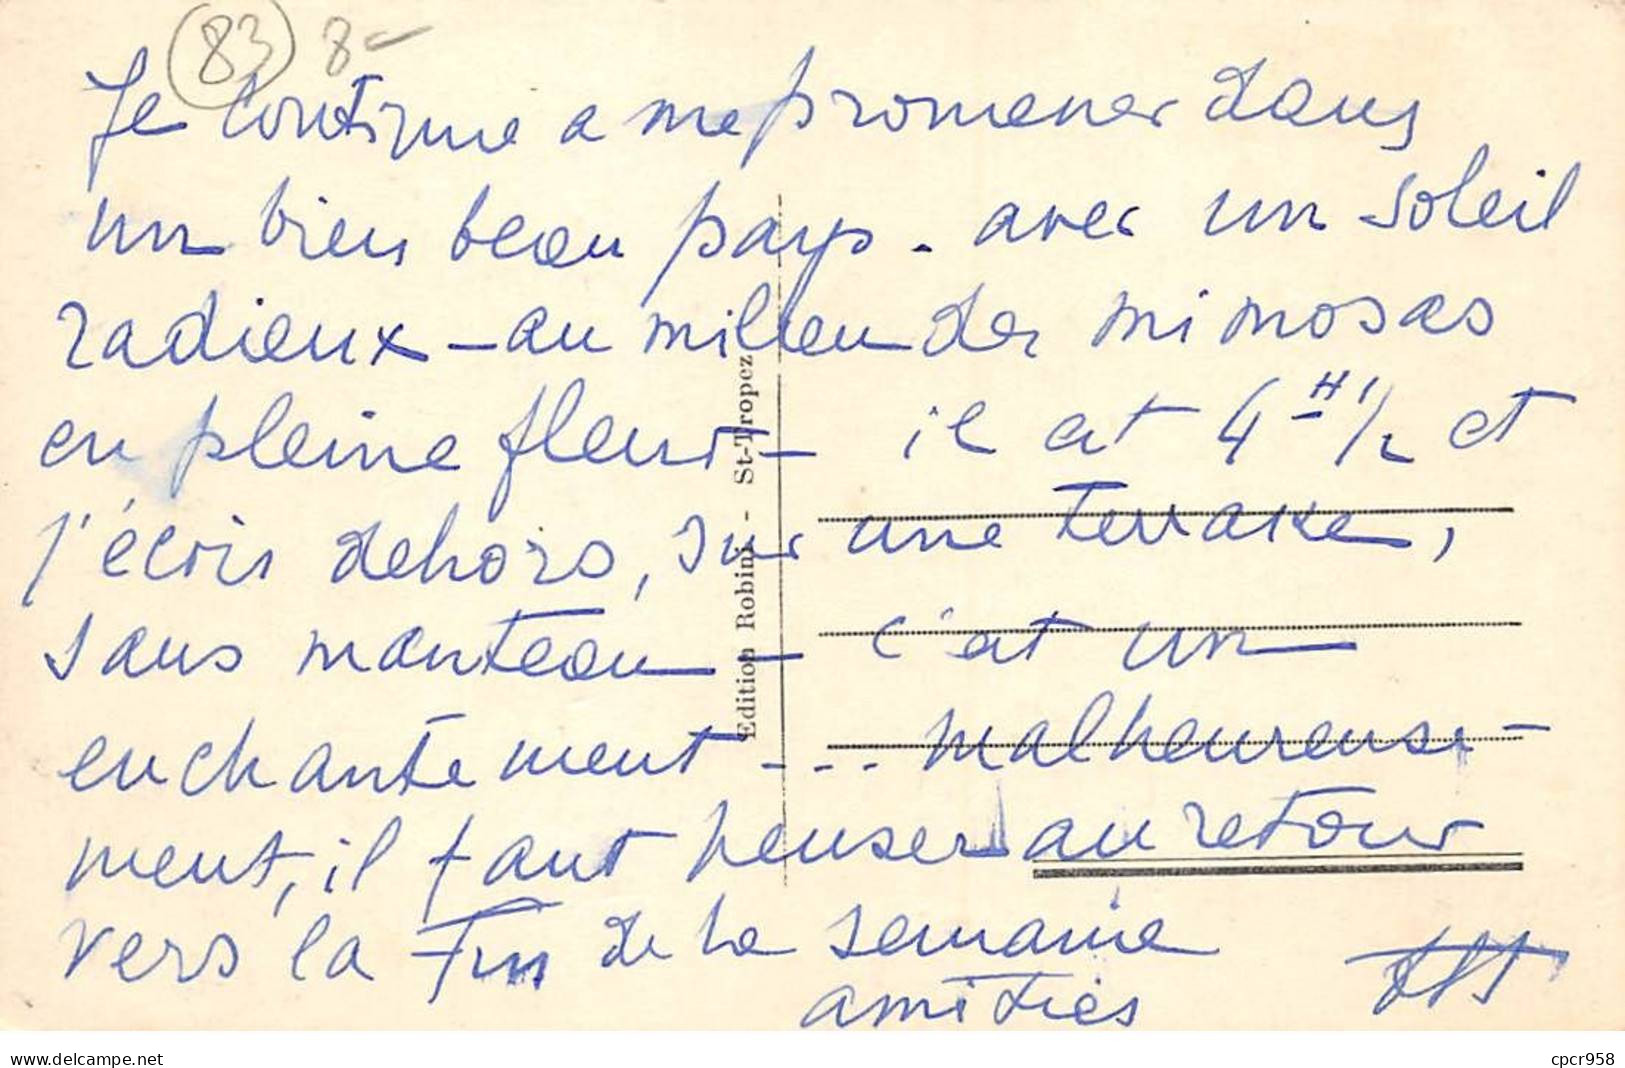 83 8-
Je continue a me promener dans
un bien beau pays - avec un soleil
radieux - au milieu des mimosas
en pleine fleur - il est 4 H 1/2 et
j'écris dehors, sur une terrasse,
sans manteau - c'est un
enchantement - . . . malheureuse-
ment, il faut penser au retour
vers la fin de la semaine
amitiés
Edition Robini - St-Tropez
www.delcampe.net
cpcr958